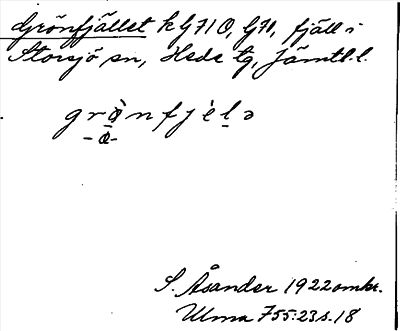 Grönfjället k G71 O, G71, fjäll i
Storsjö sn, Hede tg, Jämtl. l.
grö̀nfjèlə
-ö-
S. Åsander 1922 omkr.
Ulma 755:23 s. 18